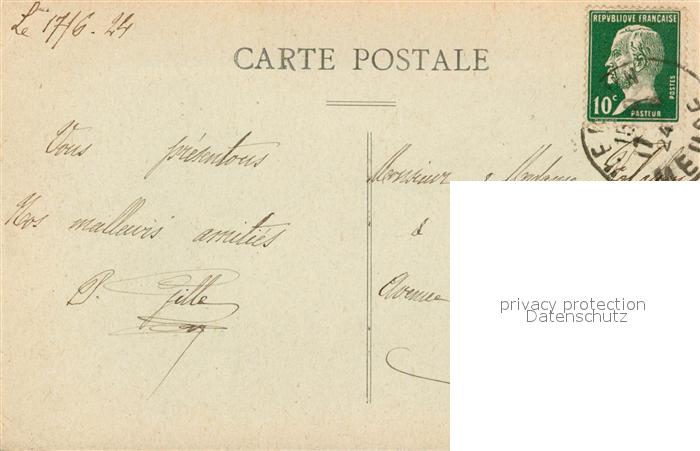 Le 17/6 - 24
CARTE POSTALE
REPUBLIQUE FRANÇAISE
10c
POSTES
PASTEUR
15
17
24
MEUSE
Vous présentons
Nos malleurs amitiés
P. Gille
Monsieur & Madame
à
Avenue
privacy protection
Datenschutz